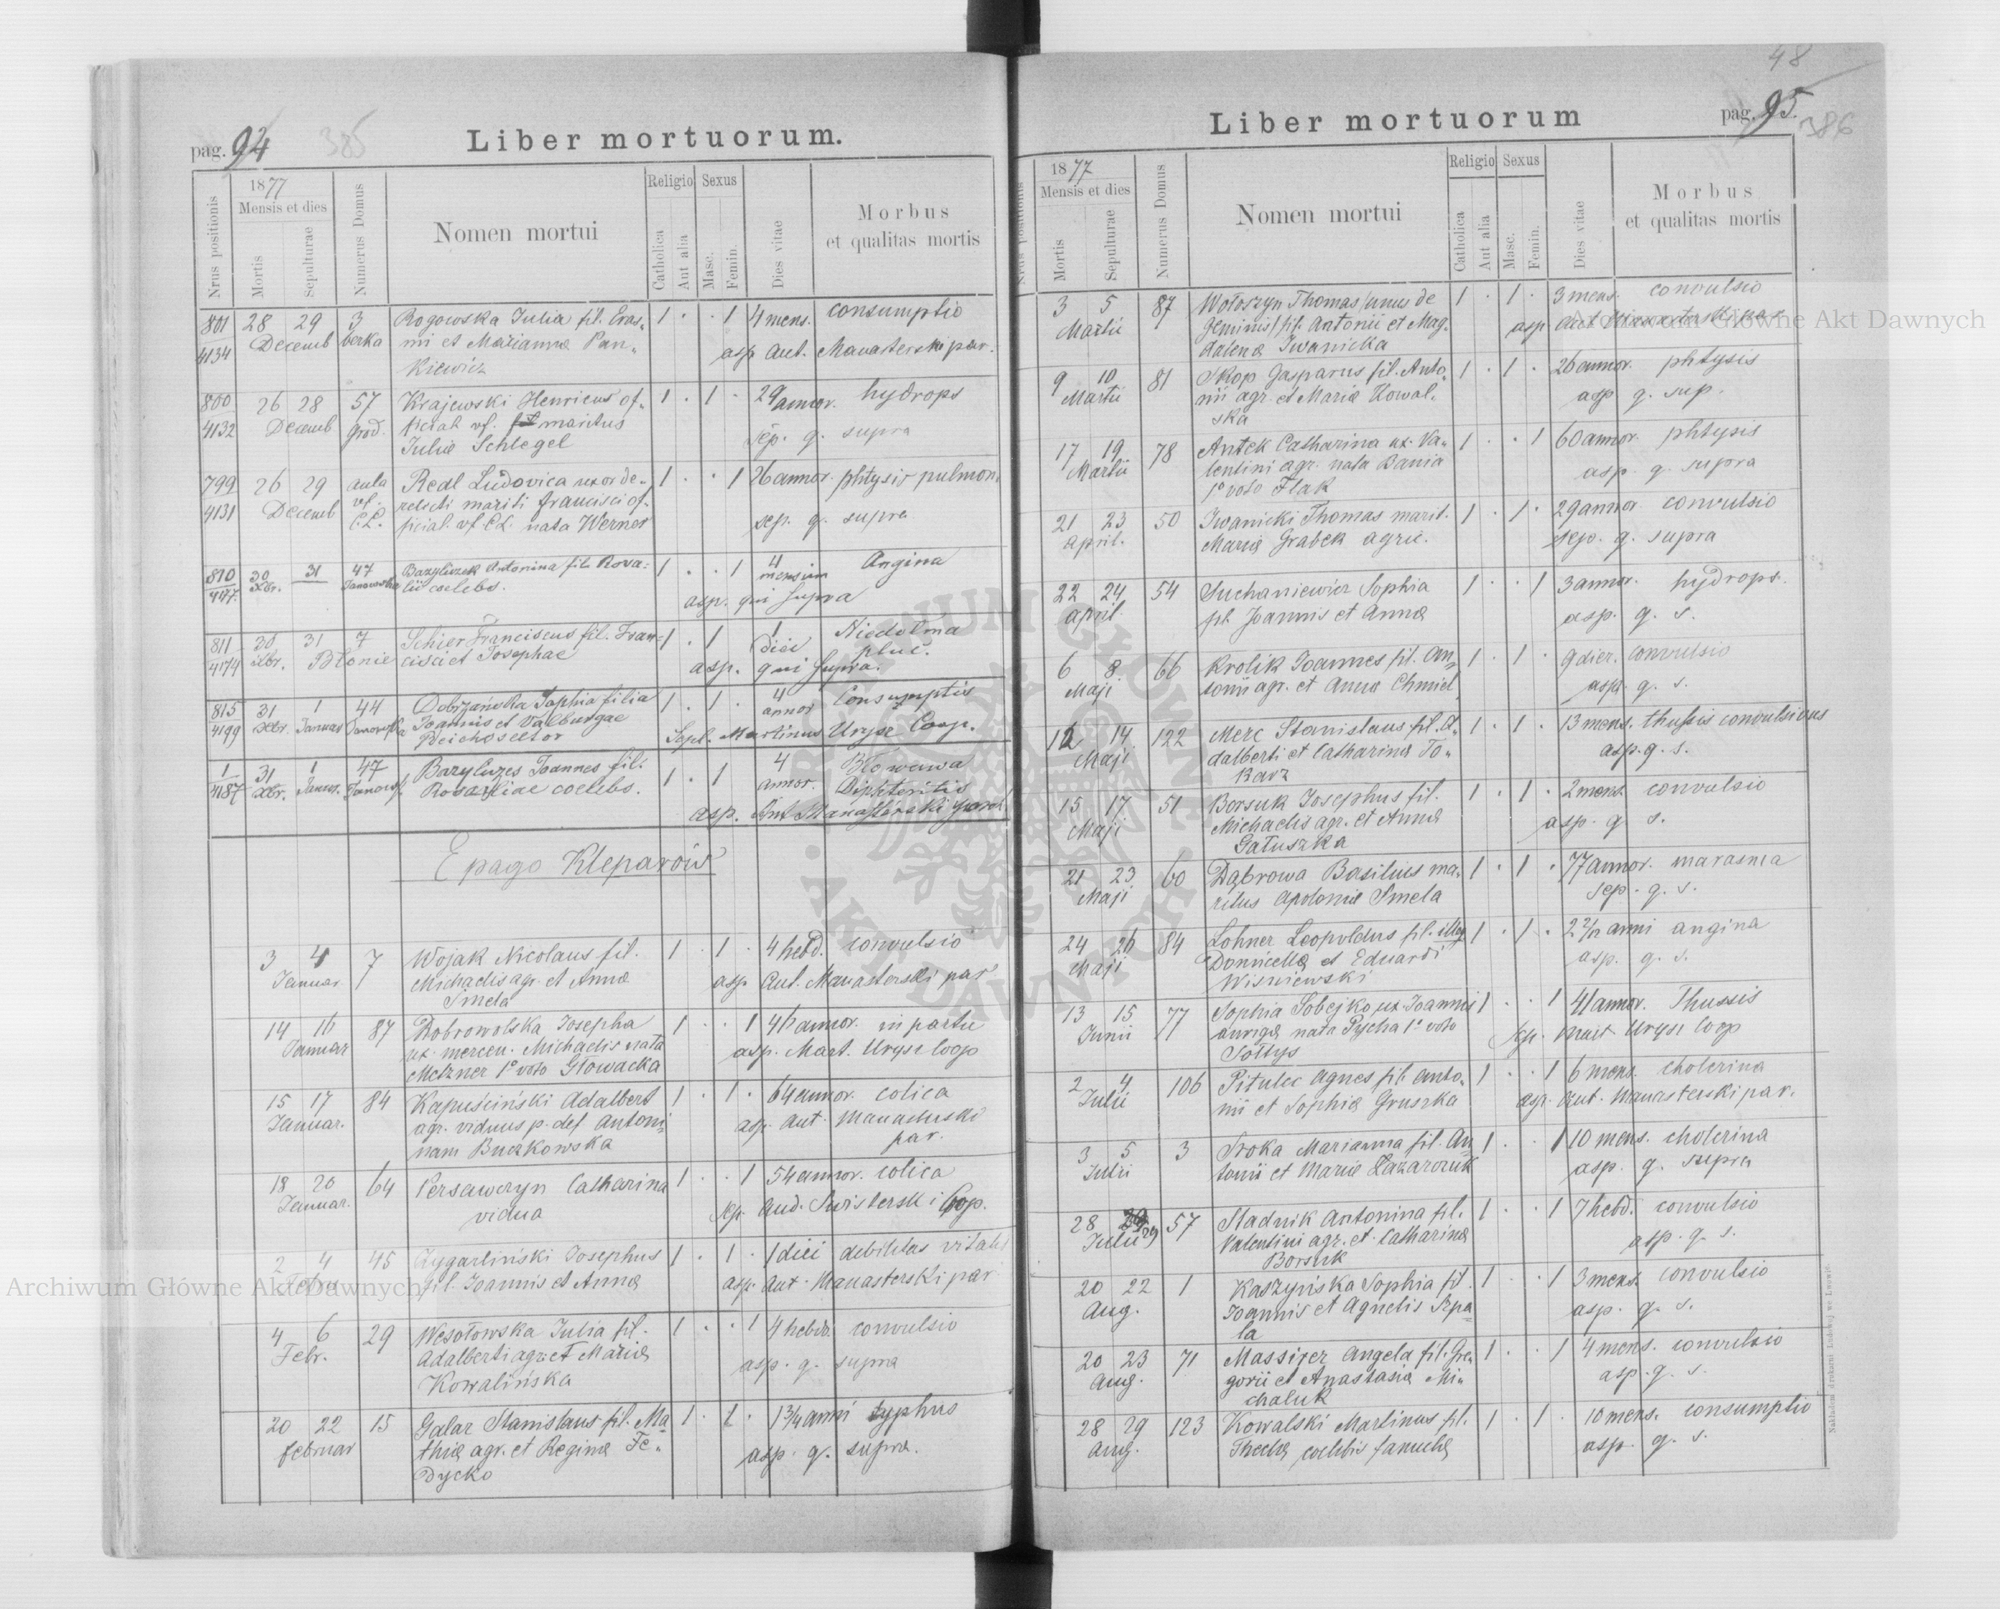 pag. 94
385
Liber mortuorum.
Nrus positionis
1877
Mensis et dies
Mortis
Sepulturae
Numerus Domus
Nomen mortui
Religio
Catholica
Aut alia
Sexus
Masc.
Femin.
Dies vitae
Morbus
et qualitas mortis
801 28 29 3 Rogowska Julia fil. Eras- 1 . . 1 4 mens. consumptio
4134 Decemb berka mi et Marianna Pan- asp. Aut. Manasterski par.
kiewicz
800 26 28 57 Krajewski Henricus of- 1 . 1 . 29 annor. hydrops
4132 Decemb Grod. ficial vf. maritus sep. q. supra
Julia Schlegel
799 26 29 aula Redl Ludovica uxor de- 1 . . 1 26 annor. phtysis pulmon.
4131 Decemb vf. relicti mariti francisci of- sep. q. supra
C.L. ficial. vf C.L. nata Werner
810 30 31 47 Bazyluzek Antonina fil. Rosa- 1 . . 1 4 Angina
4177. Xbr. Janowska lii coelebs. mensium
asp. qui supra
811 30 31 7 Schier Franciscus fil. Fran- 1 . 1 1 Niedolma
4174 Xbr. Błonie cisci et Josephae diei pluc.
asp. qui supra.
815 31 1 44 Dobrzańska Sophia filia 1 . 1 . 4 Consumptio
4199 Xbr. Januar Janowska Joannis et Valburgae annor
Reichseltor Sepel. Martinus Urysz Coop.
1 31 1 47 Bazyluzes Joannes fil. 1 . 1 4
4187 Xbr. Januar. Janowsk. Rosaliae coelebs. annor. Diphteritis
asp. Ant Manasterski paroch
E pago Kleparów
3 4 7 Wojak Nicolaus fil. 1 . 1 . 4 hebd. convulsio
Januar Michaelis agr. et Anna asp Aut. Manasterski par
Smela
14 16 87 Dobrowolska Josepha 1 . . 1 46 annor. in partu
Januar ux. mercen. Michaelis nata asp. Mart. Urysz coop
Metzner 1º voto Głowacka
15 17 84 Kapuściński Adalbert 1 . 1 . 64 annor. colica
Januar. agr. viduus p. def Antoni- asp. Aut. Manasterski
nam Buczkowska par.
18 20 64 Persaweryn Catharina 1 . . 1 54 annor. colica
Januar. vidua sep. Aud. Swisterski Coop.
2 4 45 Cygarliński Josephus 1 . 1 . 1 diei debilitas vitalis
Febru fil. Joannis et Anna asp. Aut. Manasterski par
4 6 29 Wesołowska Julia fil. 1 . . 1 4 hebd. convulsio
Febr. Adalberti agr. et Maria asp. q. supra
Kowalińska
20 22 15 Galar Stanislaus fil. Ma- 1 . 1 . 1 3/4 anni typhus
februar thia agr. et Regina Fe- asp. q. supra.
dycko
48
Liber mortuorum
pag. 95.
386
Nrus positionis
1877
Mensis et dies
Mortis
Sepulturae
Numerus Domus
Nomen mortui
Religio
Catholica
Aut alia
Sexus
Masc.
Femin.
Dies vitae
Morbus
et qualitas mortis
3 5 87 Wołoszyn Thomas /unus de 1 . 1 . 3 mens. convulsio
Martii geminis/ fil. Antonii et Mag- asp Aut Manasterski par
dalena Iwanicka
9 10 81 Skop Gasparus fil. Anto- 1 . 1 . 26 annor. phtysis
Martii nii agr. et Maria Kowal- asp q. sup.
ska
17 19 78 Antek Catharina ux. Va- 1 . . 1 60 annor. phtysis
Martii lentini agr. nata Bania asp. q. supra
1º voto Flak
21 23 50 Iwanicki Thomas marit. 1 . 1 . 29 annor convulsio
April. Maria Grabek agric. sep. q. supra
22 24 54 Suchaniewicz Sophia 1 . . 1 3 annor. hydrops.
April fil. Joannis et Anna asp. q. s.
6 8 66 Krolik Joannes fil. An- 1 . 1 . 9 dier. convulsio
Maji tonii agr. et Anna Chmiel asp. q. s.
12 14 122 Merc Stanislaus fil. A- 1 . 1 . 13 mens. thussis convulsivus
Maji dalberti et Catharina To- asp. q. s.
karz
15 17 51 Borsuk Josephus fil. 1 . 1 . 2 mens. convulsio
Maji Michaelis agr. et Anna asp. q s.
Gałuszka
21 23 60 Dąbrowa Basilius ma- 1 . 1 . 77 annor. marasma
Maji ritus Apolonia Smela sep. q. s.
24 26 84 Lohner Leopoldus fil. illeg 1 . 1 . 2 2/12 anni angina
Maji Dominella et Eduardi asp. q. s.
Wiśniewski
13 15 77 Sophia Sobejko ux. Joannis 1 . . 1 41 annor. Thussis
Junii auriga nata Pycha 1º voto sep. Mart Urysz Coop
Sołtys
2 4 106 Pitulec Agnes fil. Anto- 1 . . 1 6 mens. cholerina
Julii nii et Sophia Gruszka asp. Aut. Manasterski par.
3 5 3 Sroka Marianna fil. An- 1 . . 1 10 mens. cholerina
Julii tonii et Maria Łazarczuk asp. q. supra
28 29 57 Stadnik Antonina fil. 1 . . 1 7 hebd. convulsio
Julii Valentini agr. et Catharina asp. q. s.
Borsuk
20 22 1 Kaszyńska Sophia fil 1 . . 1 3 mens convulsio
Aug. Joannis et Agnetis Szpa- asp. q. s.
la
20 23 71 Massizer Angela fil. Gre- 1 . . 1 4 mens. convulsio
Aug. gorii et Anastasia Mi- asp. q. s.
chaluk
28 29 123 Kowalski Martinus fil. 1 . 1 . 10 mens. consumptio
Aug. Thecla coelebis famula asp. q. s.
Nakładem drukarni Ludowej we Lwowie.
Archiwum Główne Akt Dawnych
Archiwum Główne Akt Dawnych
ARCHIWUM GŁÓWNE AKT DAWNYCH